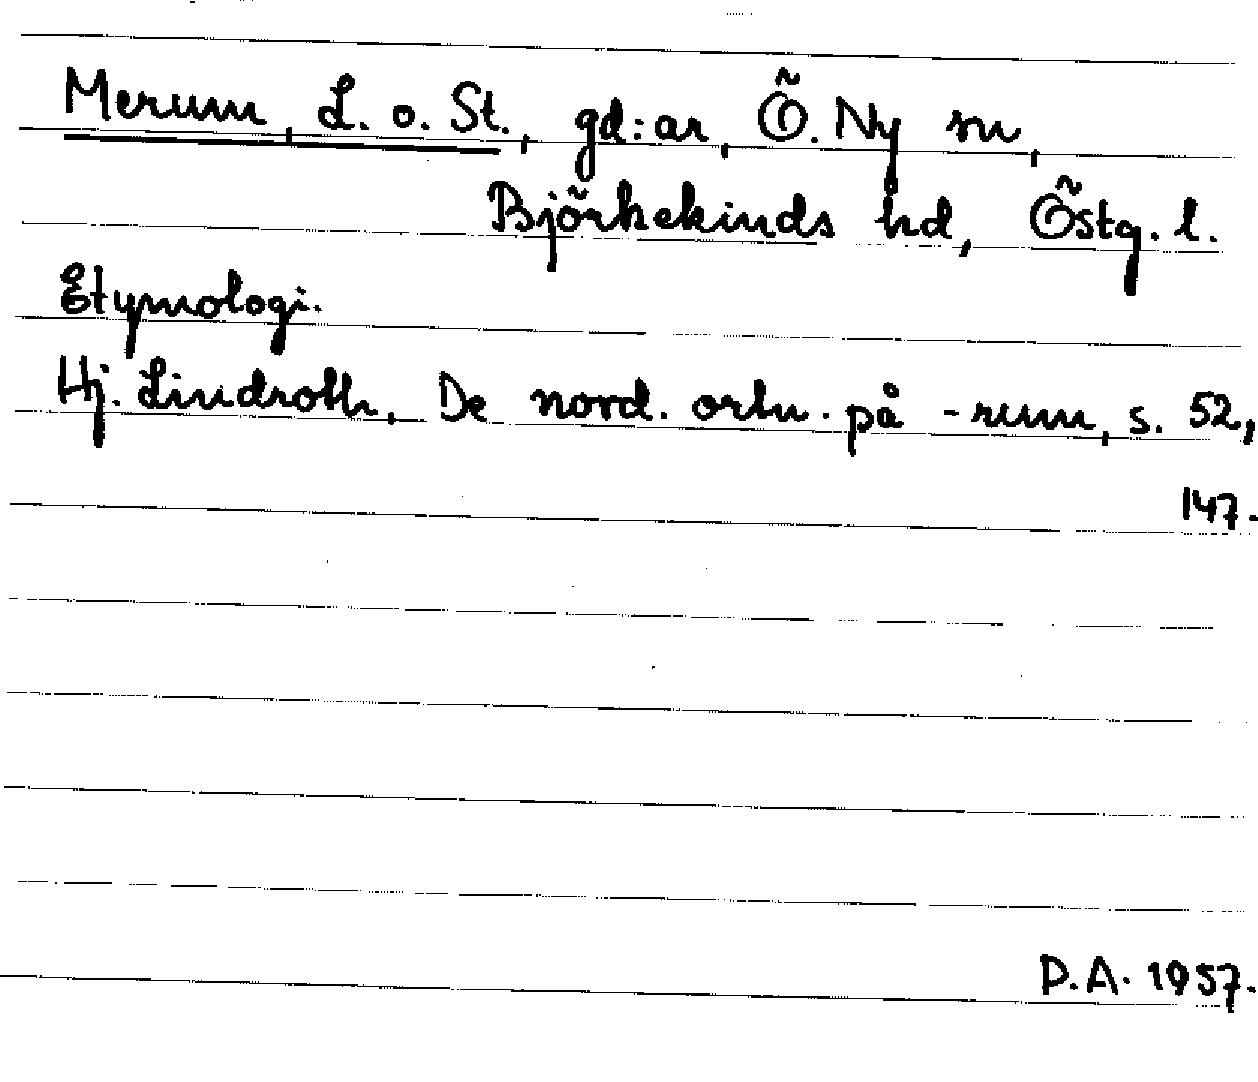 Merum, L. o. St., gd:ar, Ö. Ny sn,
Björkekinds hd, Östg. l.
Etymologi.
Hj. Lindroth, De nord. ortn. på -rum, s. 52,
147.
D.A. 1957.